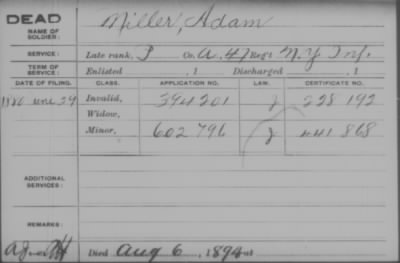 DEAD
NAME OF SOLDIER: Miller, Adam
SERVICE: Late rank, P Co. A, 47 Reg't N.Y. Inf.
TERM OF SERVICE: Enlisted , 1 Discharged , 1
DATE OF FILING. CLASS. APPLICATION NO. LAW. CERTIFICATE NO.
1880 June 29 Invalid, 394201 228192
Widow,
Minor, 602796 441868
ADDITIONAL SERVICES:
REMARKS:
Died Aug 6, 1894 at